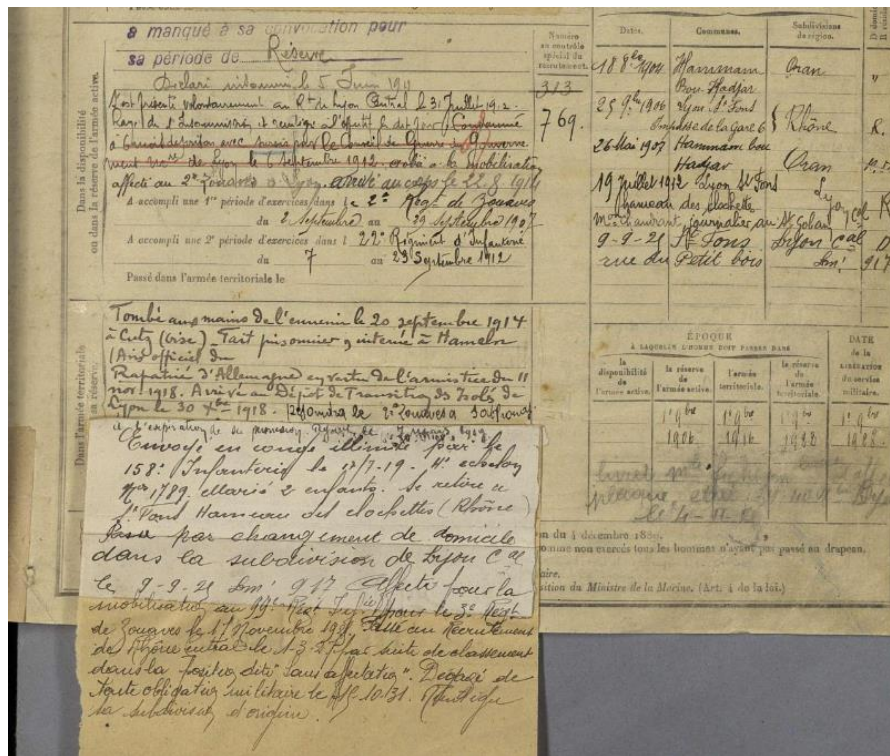 a manqué à sa convocation pour
sa période de Réserve
Déclaré insoumis le 5 Juin 1911
S'est présenté volontairement au Bt de Lyon Central le 31 Juillet 1912.
Rayé de l'Insoumission et réintégré à l'effectif le dit jour. Condamné
à 6 mois de prison avec sursis par le Conseil de Guerre du Gouverne
ment mre de Lyon le 6 Septembre 1912.
affecté au 2e Zouaves à Lyon. arrivé au corps le 22.8.1914
A accompli une 1re période d'exercices dans le 2e Régt de Zouaves
du 2 Septembre au 29 Septembre 1907
A accompli une 2e période d'exercices dans l 22e Régiment d'Infanterie
du 7 au 23 Septembre 1912
Passé dans l'armée territoriale le
Dans la disponibilité
ou dans la réserve de l'armée active.
Numéro
au contrôle
spécial du
recrutement.
313
769.
Dates.
Communes.
Subdivisions
de région.
18 8bre 1904 Hammam Oran
Bou Hadjar
25 9bre 1906 Lyon St Fons
Impasse de la Gare 6 } Rhône
26 Mai 1907 Hammam bou
Hadjar Oran
19 Juillet 1912 Lyon St Fons
hameau des clochettes Lyon cal
journalier au St Gobain
9-9-21 St Fons Lyon Cal
rue du Petit bois 917
Dans l'armée territoriale
Tombé aux mains de l'ennemi le 20 septembre 1914
à Cuts (Oise) - Fait prisonnier interné à Hameln
(Avis officiel du
Rapatrié d'Allemagne en vertu de l'armistice du 11
nov. 1918. Arrivé au Dépôt de Transition des Isolés de
Lyon le 30 Xbre 1918. rejoindra le 2e Zouaves à Sathonay
à l'expiration de sa permission
Envoyé en congé illimité par le
158e Infanterie le 4e échelon
No 1789. Marié 2 enfants. Se retire à
St Fons Hameau des clochettes (Rhône)
Passé par changement de domicile
dans la subdivision de Lyon Cal
le 9-9-21 917 Affecté pour la
mobilisation au 99e Régt Inf. pour le 3e Régt
de Zouaves le 17 Novembre Passé au Recrutement
du Rhône central le 1-3-27 par suite de classement
dans la position dite "Sans affectation". Dégagé de
toute obligation militaire le
sa subdivision d'origine.
ÉPOQUE
À LAQUELLE L'HOMME DOIT PASSER DANS
DATE
de la
LIBÉRATION
du service
militaire.
la disponibilité de l'armée active.
la réserve de l'armée active.
l'armée territoriale.
la réserve de l'armée territoriale.
1er 9bre 1906
1er 9bre 1916
on du 4 décembre 1889.
omme non exercés tous les hommes n'ayant pas passé au drapeau.
aire.
sition du Ministre de la Marine. (Art. 4 de la loi.)